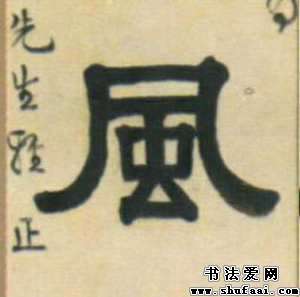 風
先生雅正
书法爱网
www.shufaai.com